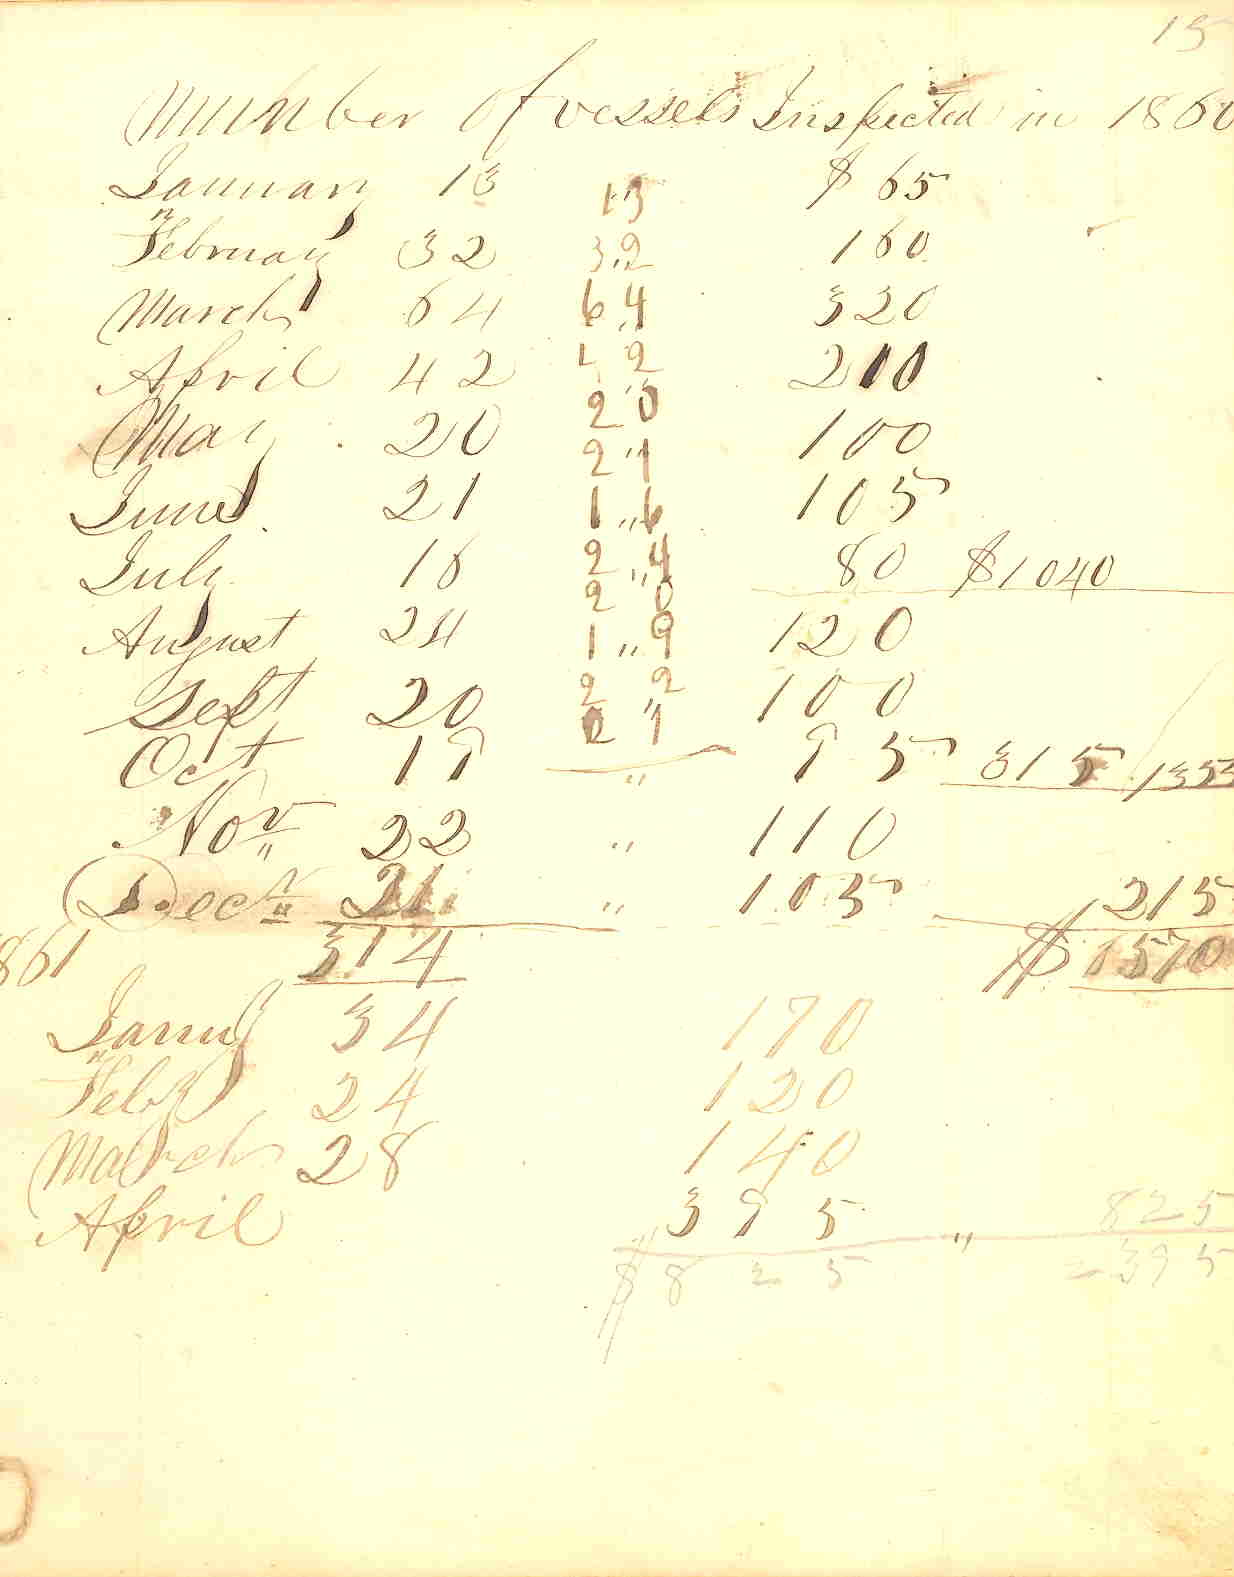 15
Number of vessels Inspected in 1860
January 13 13 $ 65
February 32 3"2 160
March 64 6"4 320
April 42 4"2 210
May 20 2"0 100
June 21 2"1 105
July 16 1"6 80 $1040
August 24 2"4 120
Sept 20 2 0 100
Oct 19 1"9 95 315 1355
Nov 22 2"2 110
Decr 21 2 1 105 215
314 $ 1570
1861
Jany 34 170
Feby 24 120
March 28 140
April 395 " 825
$ 825 2395